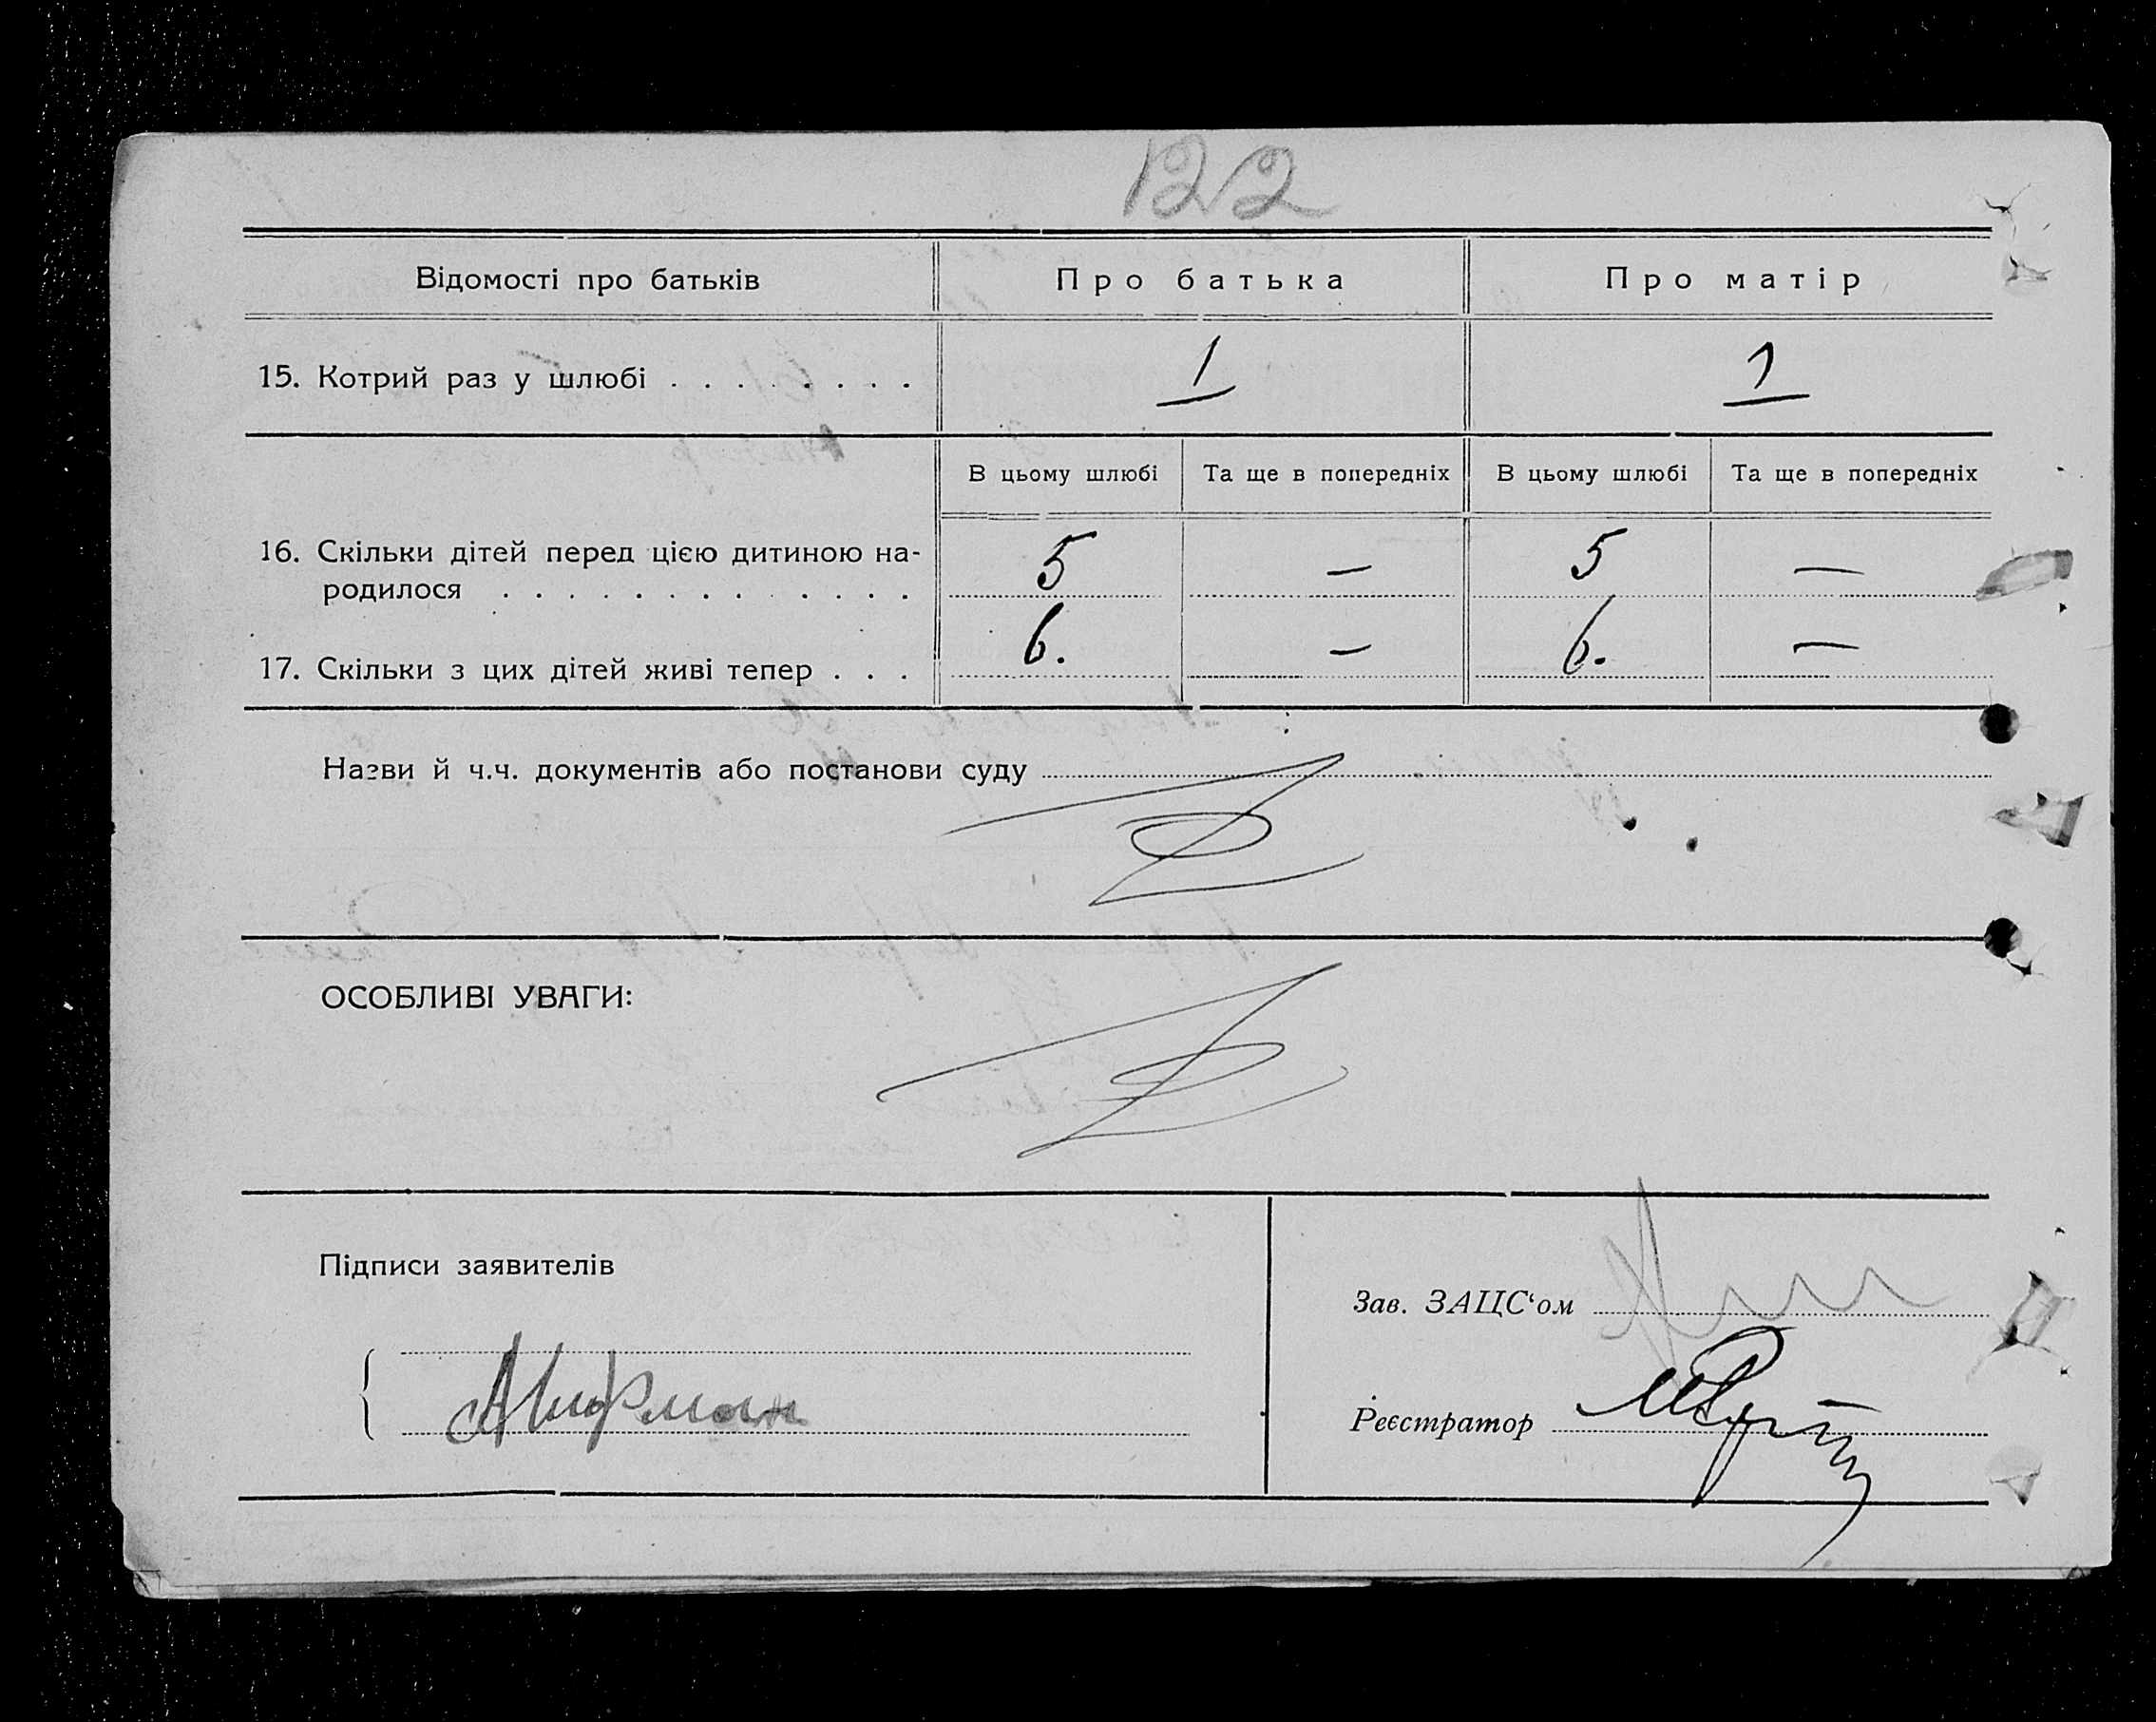 122
Відомості про батьків Про батька Про матір
15. Котрий раз у шлюбі . . . . . . . . 1 1
В цьому шлюбі Та ще в попередніх В цьому шлюбі Та ще в попередніх
16. Скільки дітей перед цією дитиною на-
родилося . . . . . . . . . . . . . 5 — 5 —
17. Скільки з цих дітей живі тепер . . . 6. — 6. —
Назви й ч.ч. документів або постанови суду
ОСОБЛИВІ УВАГИ:
Підписи заявителів
Зав. ЗАЦС‘ом
Реєстратор